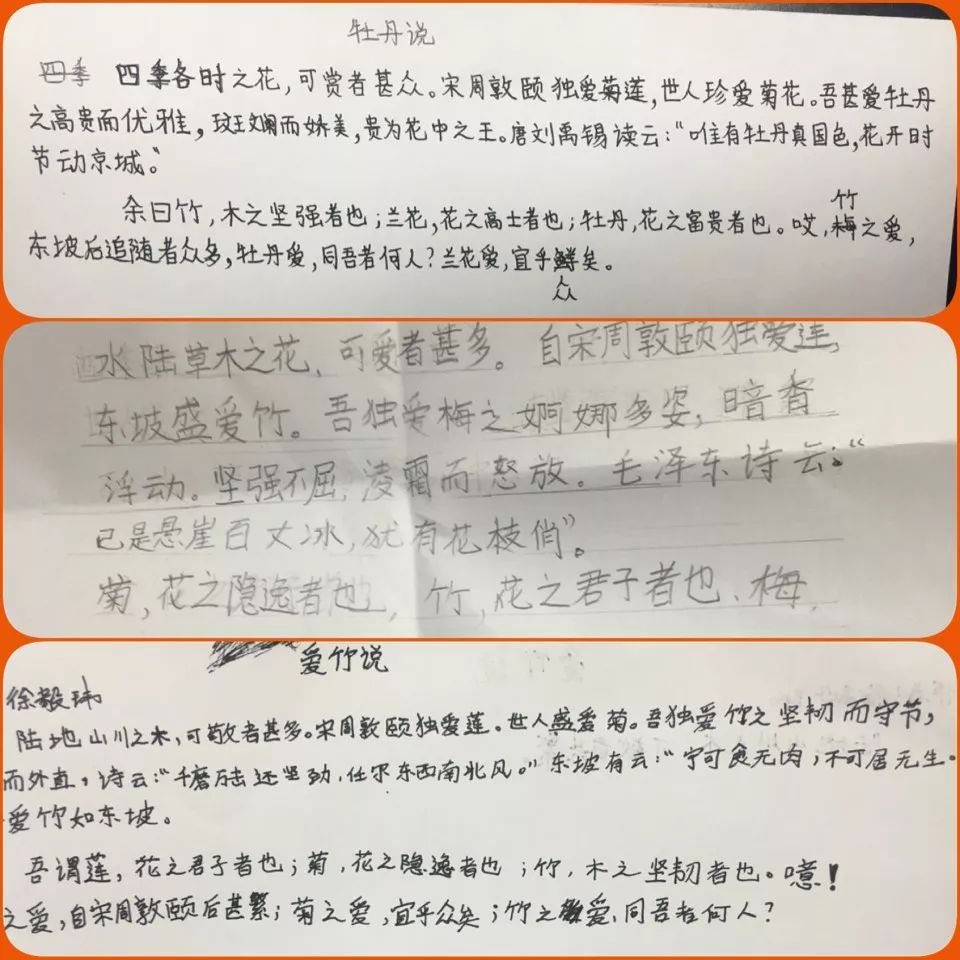 牡丹说
四季 四季各时之花，可赏者甚众。宋周敦颐独爱菊莲，世人珍爱菊花。吾甚爱牡丹
之高贵而优雅，斑斓而娇美，贵为花中之王。唐刘禹锡读云：“唯有牡丹真国色，花开时
节动京城。”
余曰竹，木之坚强者也；兰花，花之高士者也；牡丹，花之富贵者也。哎，梅竹之爱，
东坡后追随者众多，牡丹爱，同吾者何人？兰花爱，宜乎鲜众矣。
水陆草木之花，可爱者甚多。自宋周敦颐独爱莲，
东坡盛爱竹。吾独爱梅之婀娜多姿，暗香
浮动。坚强不屈，凌霜而怒放。毛泽东诗云：“
已是悬崖百丈冰，犹有花枝俏”。
菊，花之隐逸者也，竹，花之君子者也、梅，
爱竹说
徐毅玮
陆地山川之木，可敬者甚多。宋周敦颐独爱莲。世人盛爱菊。吾独爱竹之坚韧而守节，
而外直，诗云：“千磨万击还坚劲，任尔东西南北风。”东坡有云：“宁可食无肉，不可居无生。
爱竹如东坡。
吾谓莲，花之君子者也；菊，花之隐逸者也；竹，木之坚韧者也。噫！
之爱，自宋周敦颐后甚繁；菊之爱，宜乎众矣；竹之爱，同吾者何人？